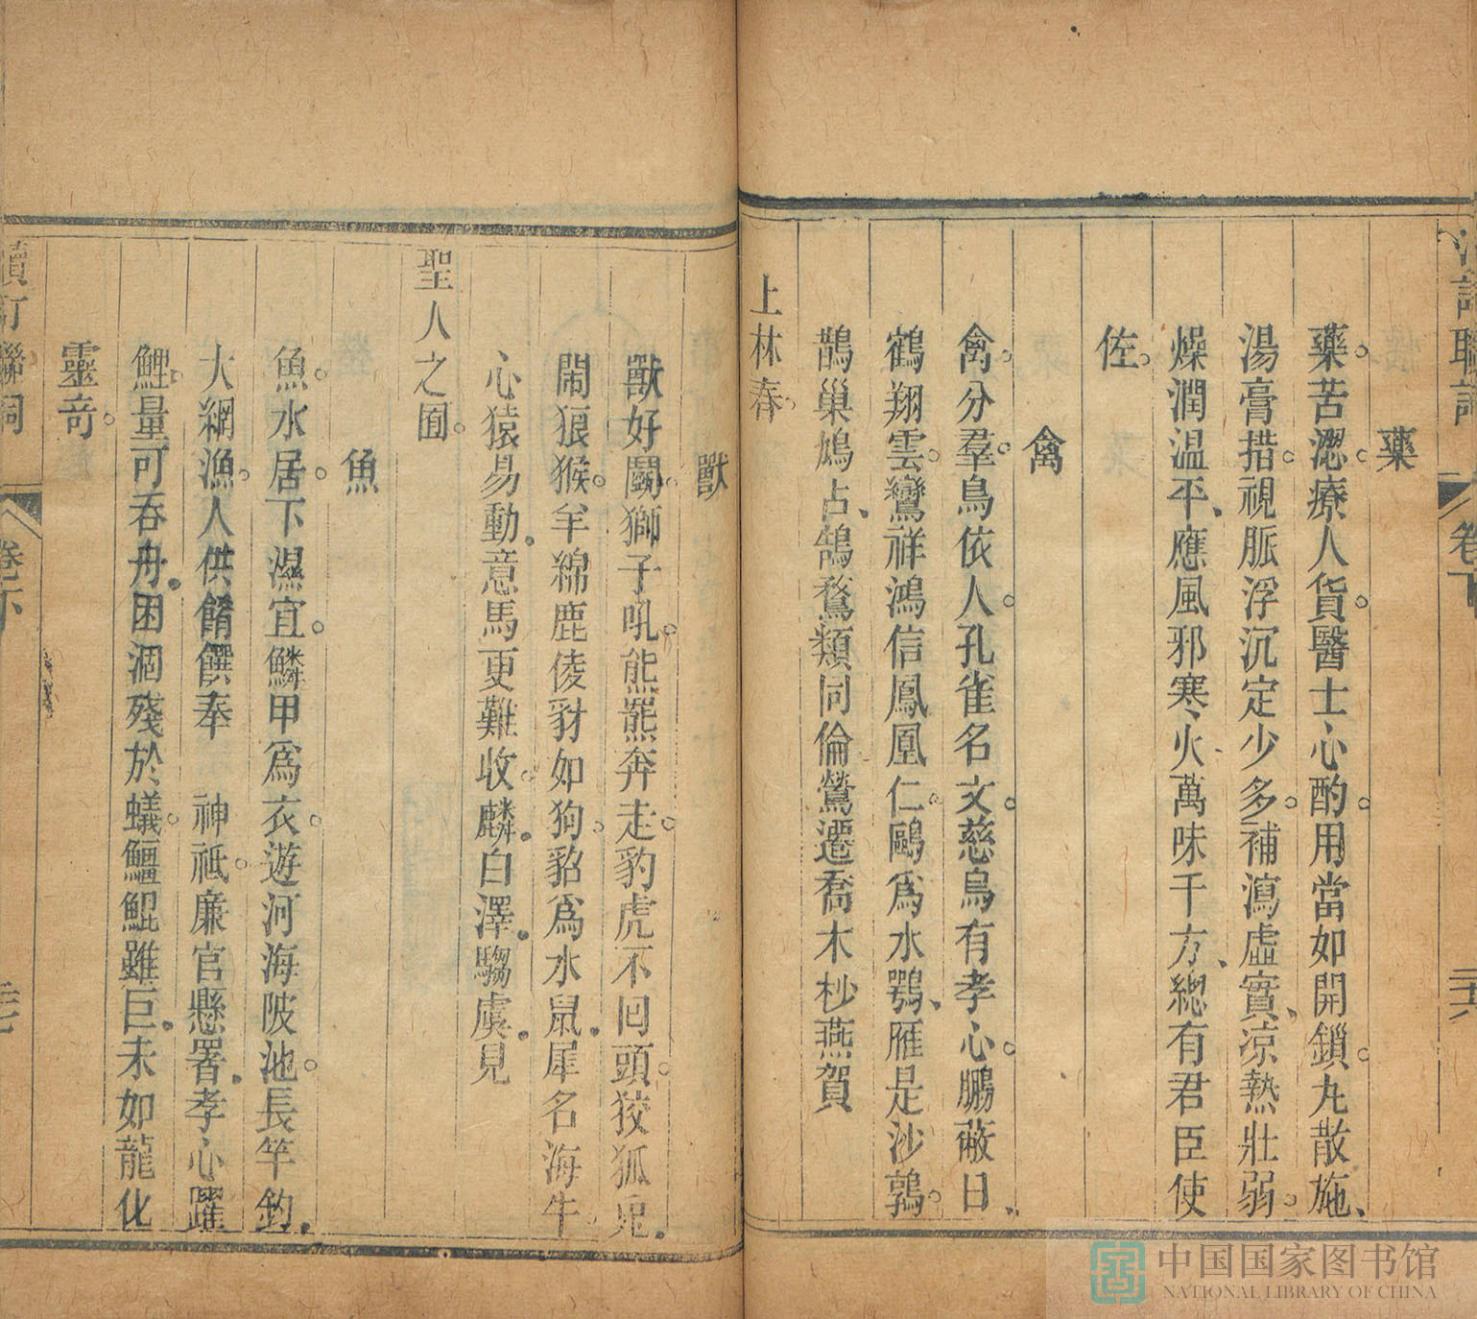 藥
藥。苦澀。療人貨。醫士心酌。用當如開鎖。丸散施、
湯膏措。視脈浮沉定少多。補瀉虛實、凉熱壯弱。
燥潤温平、應風邪寒、火萬味千方、總有君臣使
佐。
禽
禽。分羣。鳥依人。孔雀名文。慈烏有孝心。鵩蔽日、
鶴翔雲。鸞祥鴻信鳳凰仁。鷗爲水鶚、雁是沙鶉。
鵲巢鳩占、鵠鶩類同倫鶯遷喬木杪燕賀
上林春。
獸
獸好鬪。獅子吼。熊羆奔走。豹虎不回頭。狡狐兎、
鬧狼猴。羊綿鹿倰豺如狗。貂爲水鼠、犀名海牛
心猿易動、意馬更難收。麟、白澤、騶虞、見
聖人之囿。
魚
魚。水居。下濕宜。鱗甲爲衣。遊河海陂池。長竿釣、
大網漁。人供餚饌奉 神祗。廉官懸署、孝心躍
鯉。量可吞舟、困涸殘於蟻。鱷鯤雖巨、未如龍化
靈奇。
續訂聯詞
卷下
卷下
中国国家图书馆
NATIONAL LIBRARY OF CHINA